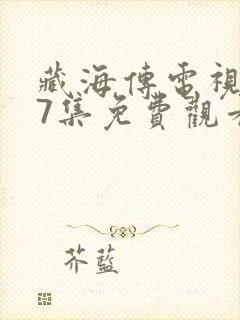 藏海傳電視
7集免費觀看
芥藍